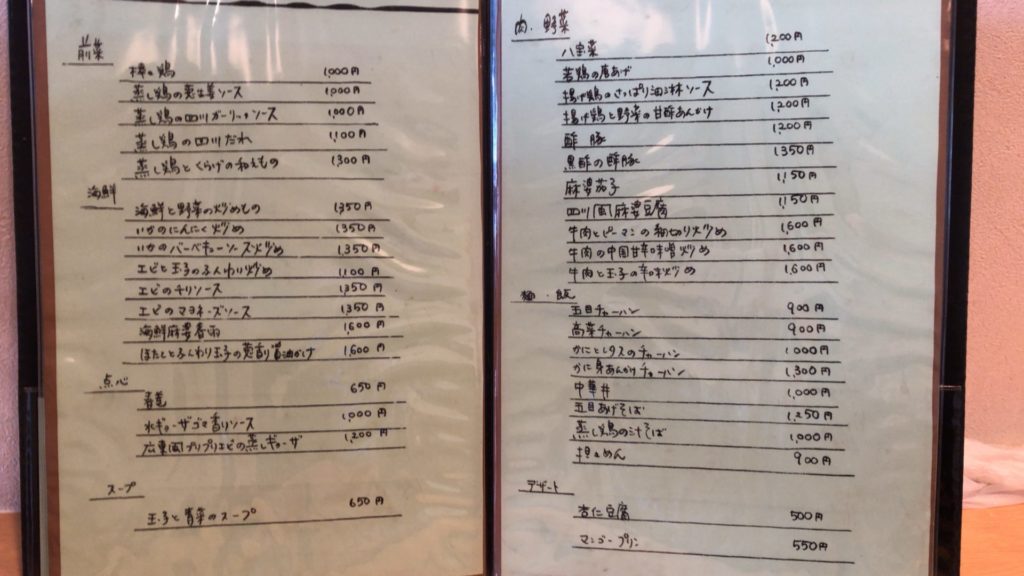 前菜
棒々鶏 1,000円
蒸し鶏の葱生姜ソース 1,000円
蒸し鶏の四川ガーリックソース 1,000円
蒸し鶏の四川だれ 1,100円
蒸し鶏とくらげの和えもの 1,300円
海鮮
海鮮と野菜の炒めもの 1,350円
いかのにんにく炒め 1,350円
いかのバーベキューソース炒め 1,350円
エビと玉子のふんわり炒め 1,100円
エビのチリソース 1,350円
エビのマヨネーズソース 1,350円
海鮮麻婆春雨 1,600円
ほたてとふんわり玉子の葱香り醤油かけ 1,600円
点心
春巻 650円
水ギョーザゴマ香りソース 1,000円
広東風プリプリエビの蒸しギョーザ 1,200円
スープ
玉子と青菜のスープ 650円
肉・野菜
八宝菜 1,200円
若鶏の唐あげ 1,000円
揚げ鶏のさっぱり油淋ソース 1,200円
揚げ鶏と野菜の甘酢あんかけ 1,200円
酢豚 1,200円
黒酢の酢豚 1,350円
麻婆茄子 1,150円
四川風麻婆豆腐 1,150円
牛肉とピーマンの細切り炒め 1,600円
牛肉の中国甘辛味噌炒め 1,600円
牛肉と玉子の辛味炒め 1,600円
麺・飯
五目チャーハン 900円
高菜チャーハン 900円
かにとレタスのチャーハン 1,000円
かに身あんかけチャーハン 1,300円
中華丼 1,000円
五目あげそば 1,250円
蒸し鶏の汁そば 1,000円
担々めん 900円
デザート
杏仁豆腐 500円
マンゴープリン 550円